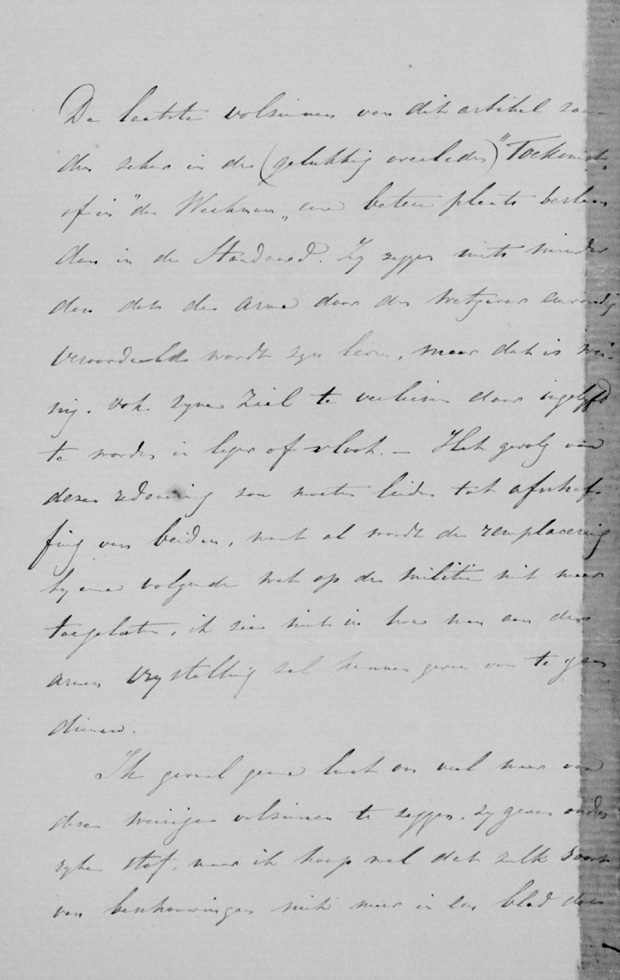 De laatste volzinnen van dit artikel zou-
den zeker in de (gelukkig overleden) "Toekomst"
of in "de Werkman" eene betere plaats beslaan
dan in de Standaard. Zy zeggen niets minder
dan dat de arme door den wetgever eenvoudig
veroordeeld wordt zyn leven, maar dat is wei-
nig. ook zyne Ziel te verliezen door ingelyfd
te worden in leger of vloot. – Het gevolg van
deze redenering zou moeten leiden tot afschaf-
fing van beiden, want al wordt de remplacering
by eene volgende wet op de militie niet meer
toegelaten, ik zie niet in hoe men aan den
armen vrystelling zal kunnen geven van te gaan
dienen.
Ik gevoel geene lust om veel meer van
deze weinige volzinnen te zeggen. zy geven onder
stof, maar ik hoop wel dat zulk soort
van beschouwingen niet meer in een blad dan